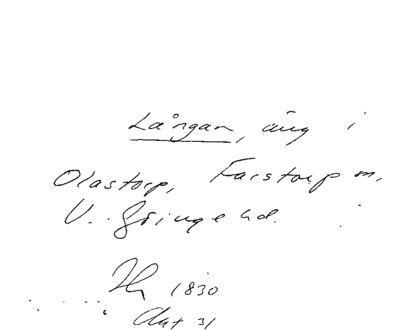 Långan, äng i
Olastorp, Farstorp m,
V. Göinge hd.
1830
Akt 31